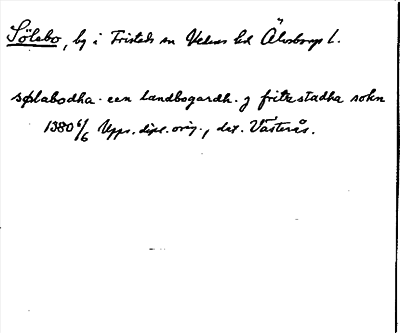 Sölebo, by i Fristads sn Vedens hd Älvsborgs l.
sølabodha. een landbogardh. j fritzstadha sokn
1380 6/6 Upps. dipl. orig., dat. Västerås.